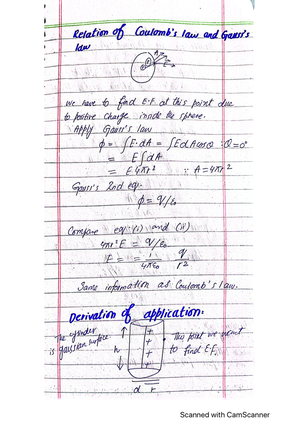 Relation of Coulomb's law and Gauss's
law
we have to find E.F at this point due
to positive charge inside the sphere.
Apply Gauss's law
ϕ = ∫E.dA = ∫EdAcosθ ∵θ=0°
= E∫dA
= E4πr² ∵ A=4πr²
Gauss's 2nd eq.
ϕ = q/ε₀
Compare eq (i) and (ii)
4πr²E = q/ε₀
E = 1/4πε₀ q/r²
Same information as Coulomb's law.
Derivation of application:
The cylinder
is gaussian surface.
h
+
+
+
+
This point we want
to find E.F.
d r
Scanned with CamScanner